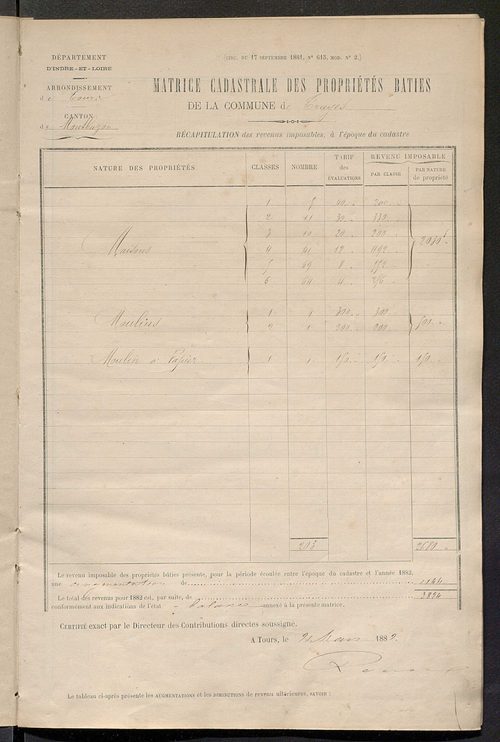 DÉPARTEMENT
D'INDRE-ET-LOIRE
ARRONDISSEMENT
de Tours
CANTON
de Montbazon
(CIRC. DU 17 SEPTEMBRE 1881, N° 615, MOD. N° 2.)
MATRICE CADASTRALE DES PROPRIÉTÉS BATIES
DE LA COMMUNE de Truyes
RÉCAPITULATION des revenus imposables, à l'époque du cadastre
NATURE DES PROPRIÉTÉS CLASSES NOMBRE TARIF des ÉVALUATIONS REVENU IMPOSABLE
PAR CLASSE PAR NATURE de propriété
1 40 
2 11 30 330
3 10 20 200
Maisons 4 41 12 492
5 69 8 552
6 69 4 276
1 1 300 300
Moulins 500
2 1 200 200
Moulin à Papier 1 1 150 150 150
Le revenu imposable des propriétés bâties présente, pour la période écoulée entre l'époque du cadastre et l'année 1882,
une augmentation de 1144
Le total des revenus pour 1882 est, par suite, de 3824
conformément aux indications de l'état annexé à la présente matrice.
CERTIFIÉ exact par le Directeur des Contributions directes soussigné.
A TOURS, le Mars 1882.
Le tableau ci-après présente les AUGMENTATIONS et les DIMINUTIONS de revenu ultérieures, SAVOIR :